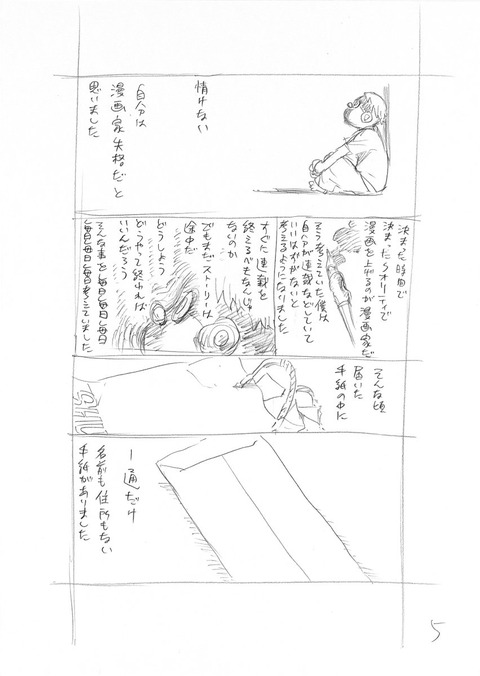 情けない
自分は
漫画家失格だと
思いました
決まった時間で
決まったクオリティで
漫画を上げるのが漫画家だ
そう考えていた僕は
自分が連載などしていて
いいわけがないと
考えるようになりました
すぐに連載を
終えるべきなんじゃ
ないのか
でもまだストーリーは
途中だ
どうしよう
どうやって終われば
いいんだろう
そんな事を毎日毎日毎日
毎日毎日毎日考えていました
そんな頃
届いた
手紙の中に
一通だけ
名前も住所もない
手紙がありました
5